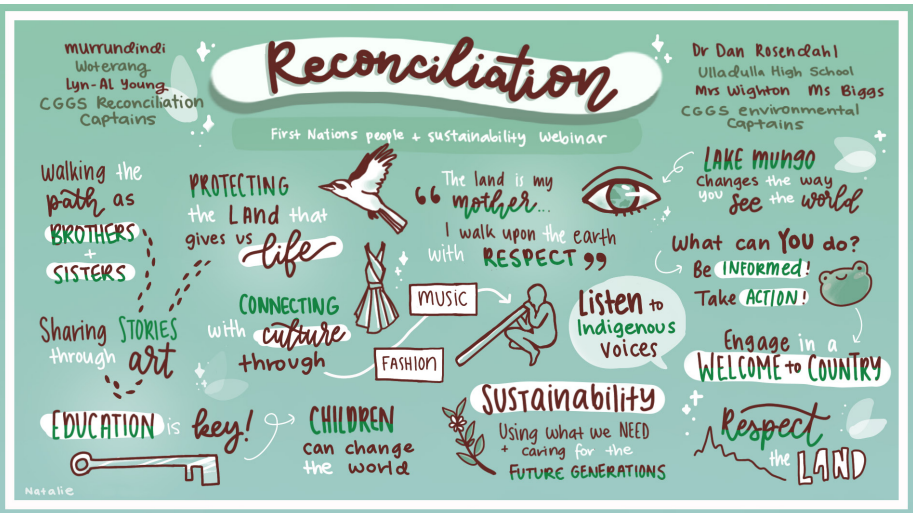 Reconciliation
First Nations people + sustainability Webinar
murrundindi
Woterang
Lyn-Al Young
CGGS Reconciliation
Captains
Dr Dan Rosendahl
Ulladulla High School
Mrs Wighton Ms Biggs
CGGS environmental
Captains
Walking the
path as
BROTHERS
+
SISTERS
Sharing STORIES
through art
EDUCATION is key!
PROTECTING
the LAND that
gives us
life
CONNECTING
with culture
through
MUSIC
FASHION
CHILDREN
can change
the world
“ The land is my
mother...
I walk upon the earth
with RESPECT ”
Listen to
Indigenous
voices
SUSTAINABILITY
Using what we NEED
+ caring for the
FUTURE GENERATIONS
LAKE mungo
changes the way
you see the world
What can YOU do?
Be INFORMED!
Take ACTION!
Engage in a
WELCOME to COUNTRY
Respect
the LAND
Natalie